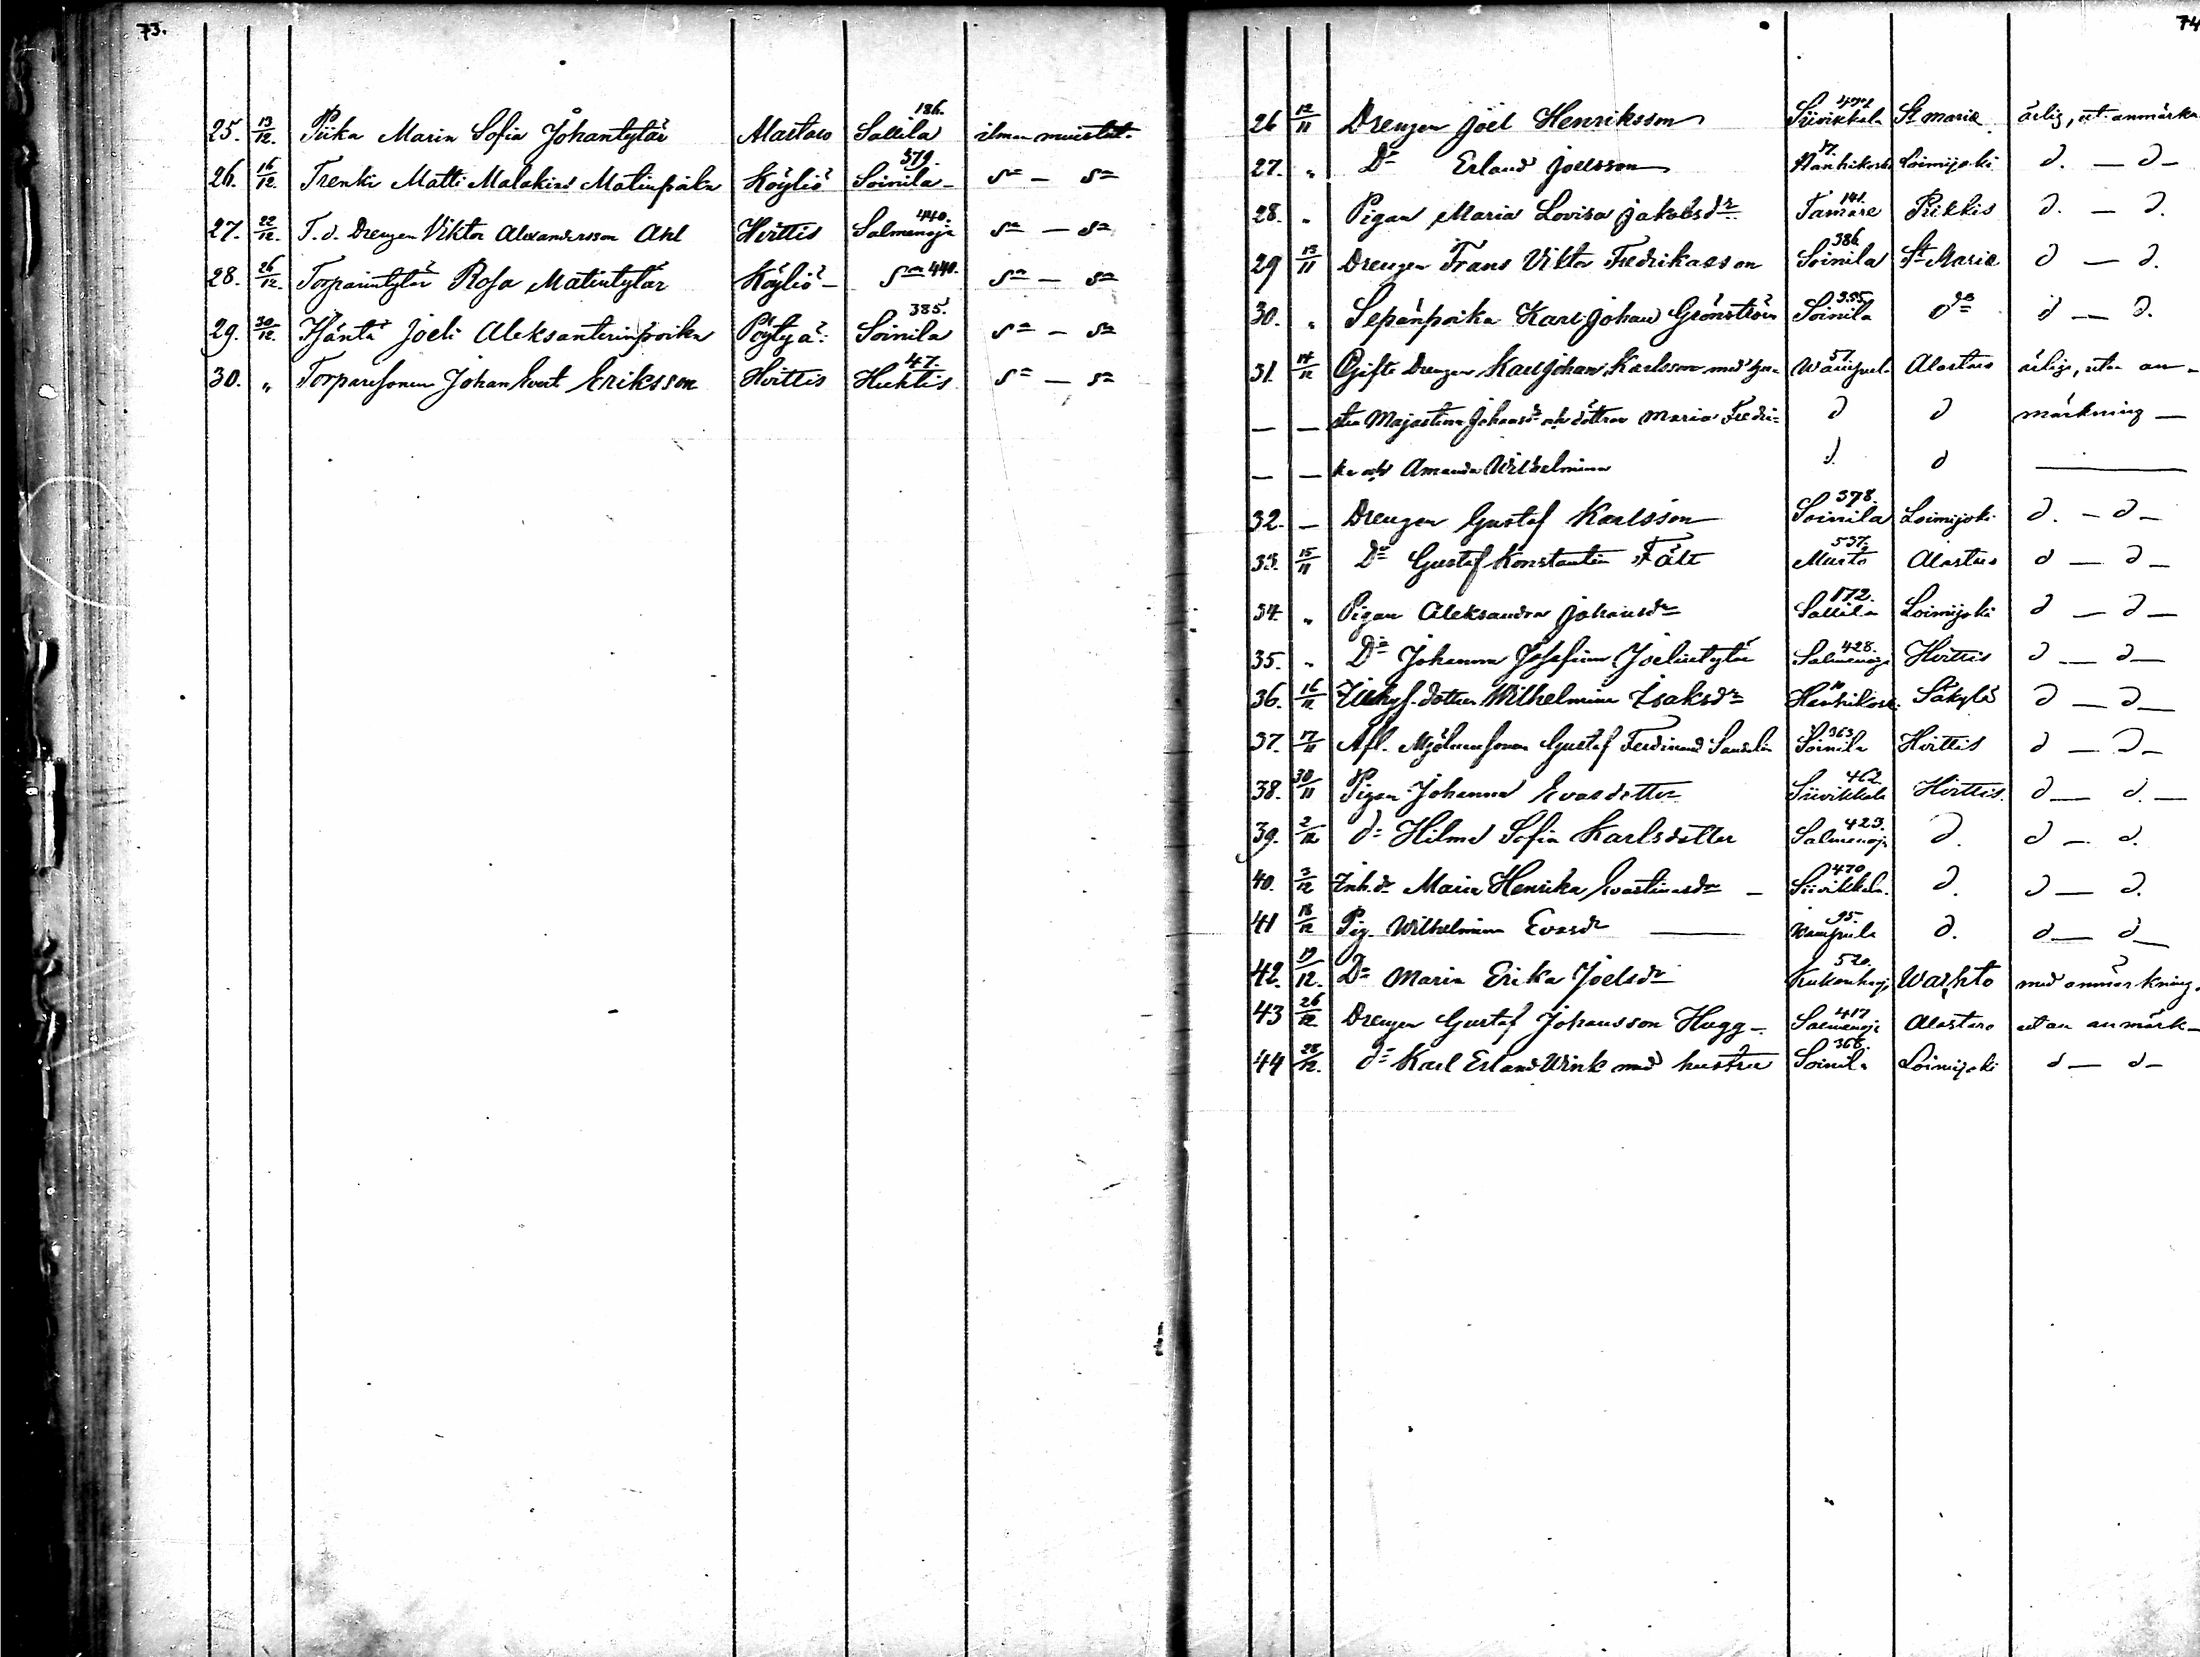 73.
25. 13/12. Piika Maria Sofia Johantytär Alastaro Sallila 186. ilman muistut.
26. 16/12. Trenki Matti Malakias Matinpoika Köyliö Soinila 379. Sa — Sa
27. 22/12. T. d. Drengen Viktor Alexandersson Ahl Hvittis Salmenoja 440. Sa — Sa
28. 26/12. Torparintytär Rosa Matintytär Köyliö Sa 440. Sa — Sa
29. 30/12. Itsell. Joeli Aleksanterinpoika Pöytyä Soinila 385. Sa — Sa
30. " Torparesonen Johan Evert Eriksson Hvittis Huhtis 47. Sa — Sa
74
26 12/11 Drengen Joel Henriksson Siivikkala St Marie ärlig, ut. anmärkn.
27. " Do Erland Joelsson Hanhikoski 17. Loimijoki d. — d —
28. " Pigan Maria Lovisa Jakobsdr Tamare 141. Pikkis d. — d.
29 13/11 Drengen Frans Viktor Fredriksson Soinila 386 St Marie d — d.
30. " Sepänpoika Karl Johan Grönström Soinila 385. do d — d.
31. 14/11 Gifte Drengen Karl Johan Karlsson med hu- Wampul. 57. Alastaro ärlig, utan an-
— — stru Maja Stina Johansdr och döttrar Maria Fredri- d d märkning —
— — ka och Amanda Wilhelmina d. d
32. — Drengen Gustaf Karlsson Soinila 378. Loimijoki d. — d —
33. 15/11 Do Gustaf Konstantin Fält Musto 537. Alastaro d — d —
34. " Pigan Aleksandra Johansdr Sallila 172. Loimijoki d — d —
35. " Do Johanna Josefina Joelintytär Salmenoja 428. Hvittis d — d —
36. 16/11 Inhys. dotter Wilhelmina Isaksdr Hanhikosk. 10 Säkylä d — d —
37. 17/11 Afl. Mjölnaresonen Gustaf Ferdinand Sandelin Soinila 363. Hvittis d — d —
38. 30/11 Pigan Johanna Evasdotter Siivikkala 462. Hvittis. d — d. —
39. 2/12 do Hilma Sofia Karlsdotter Salmenoja 423. d. d — d.
40. 3/12 Inh. dr Maria Henrika Evastinasdr — Siivikkala. 470 d. d — d.
41 18/12 Pig. Wilhelmina Evasdr Wampula 95. d. d — d —
42. 19/12. Do Maria Erika Joelsdr Kukonharj. 520. Wahto med anmärkning.
43 26/12 Drengen Gustaf Johansson Hugg — Salmenoja 417 Alastaro utan anmärk —
44 28/12. do Karl Erland Wink med hustru Soinila 368. Loimijoki d — d —